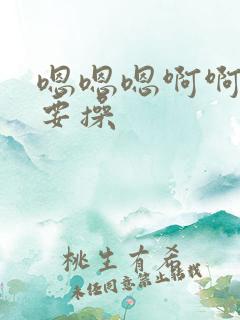 嗯嗯嗯啊啊
要操
桃生有希
未经同意禁止转载